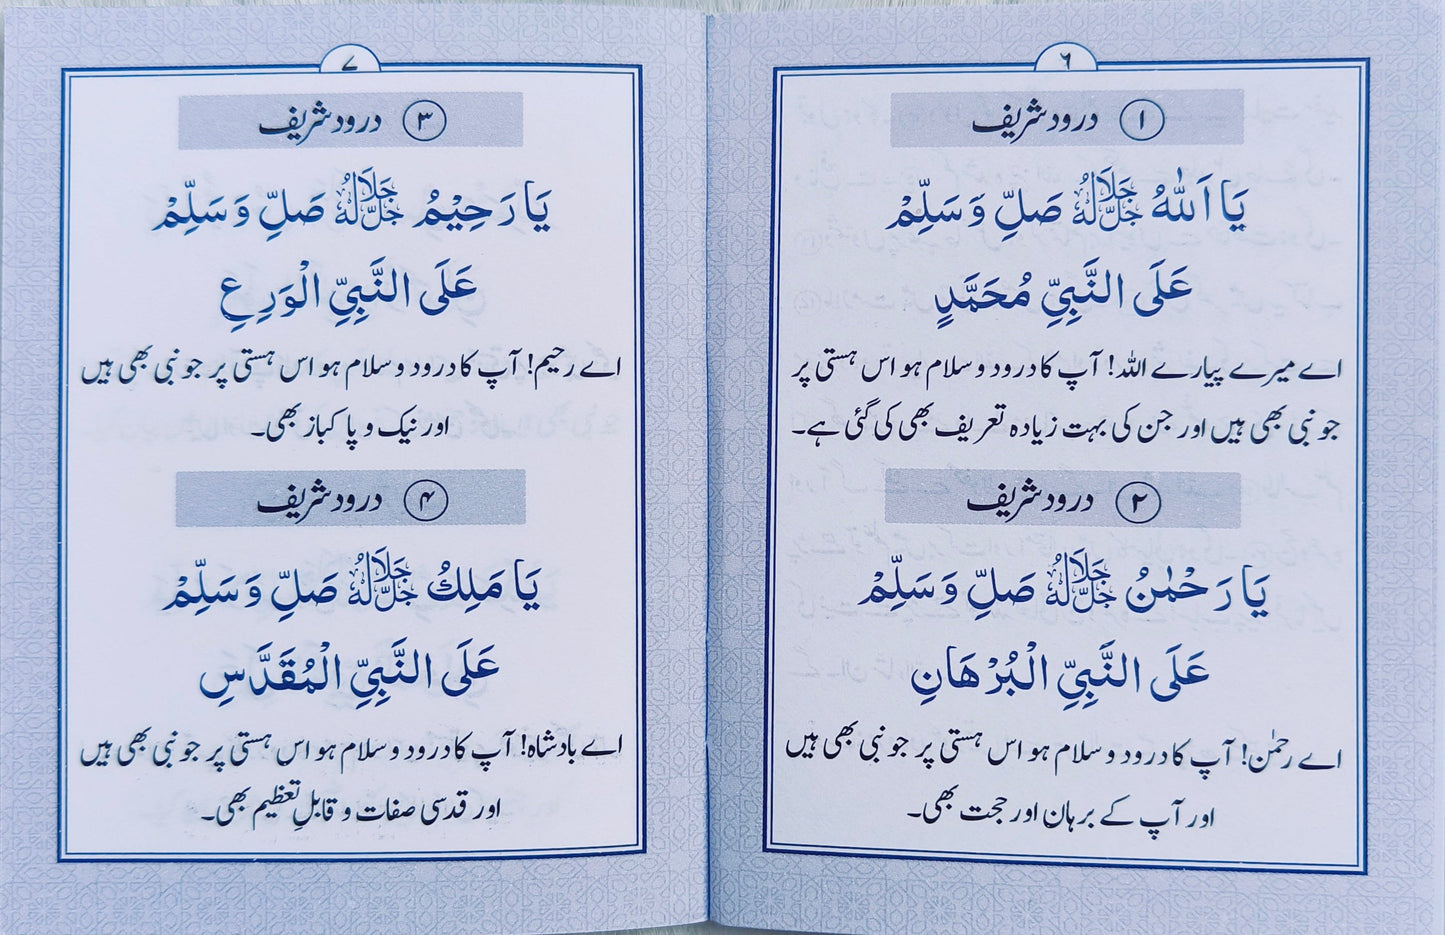 ۶
۱ درود شریف
يَا اَللّٰهُ جَلَّ جَلَالُهُ صَلِّ وَسَلِّمْ
عَلَى النَّبِيِّ مُحَمَّدٍ
اے میرے پیارے اللہ! آپ کا درود و سلام ہو اس ہستی پر
جو نبی بھی ہیں اور جن کی بہت زیادہ تعریف بھی کی گئی ہے۔
۲ درود شریف
يَا رَحْمٰنُ جَلَّ جَلَالُهُ صَلِّ وَسَلِّمْ
عَلَى النَّبِيِّ الْبُرْهَانِ
اے رحمٰن! آپ کا درود و سلام ہو اس ہستی پر جو نبی بھی ہیں
اور آپ کے برہان اور حجت بھی۔
۷
۳ درود شریف
يَا رَحِيْمُ جَلَّ جَلَالُهُ صَلِّ وَسَلِّمْ
عَلَى النَّبِيِّ الْوَرِعِ
اے رحیم! آپ کا درود و سلام ہو اس ہستی پر جو نبی بھی ہیں
اور نیک و پاکباز بھی۔
۴ درود شریف
يَا مَلِكُ جَلَّ جَلَالُهُ صَلِّ وَسَلِّمْ
عَلَى النَّبِيِّ الْمُقَدَّسِ
اے بادشاہ! آپ کا درود و سلام ہو اس ہستی پر جو نبی بھی ہیں
اور قدسی صفات و قابلِ تعظیم بھی۔